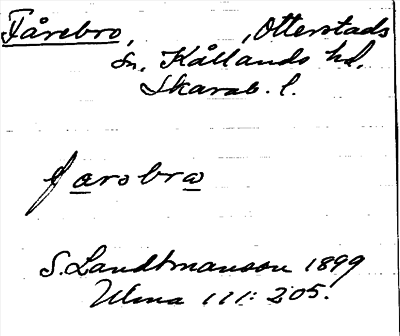 Fårebro, Otterstads
sn. Kållands hd.
Skarab. l.
farobra
S. Landtmanson 1899
Ulma 111: 205.